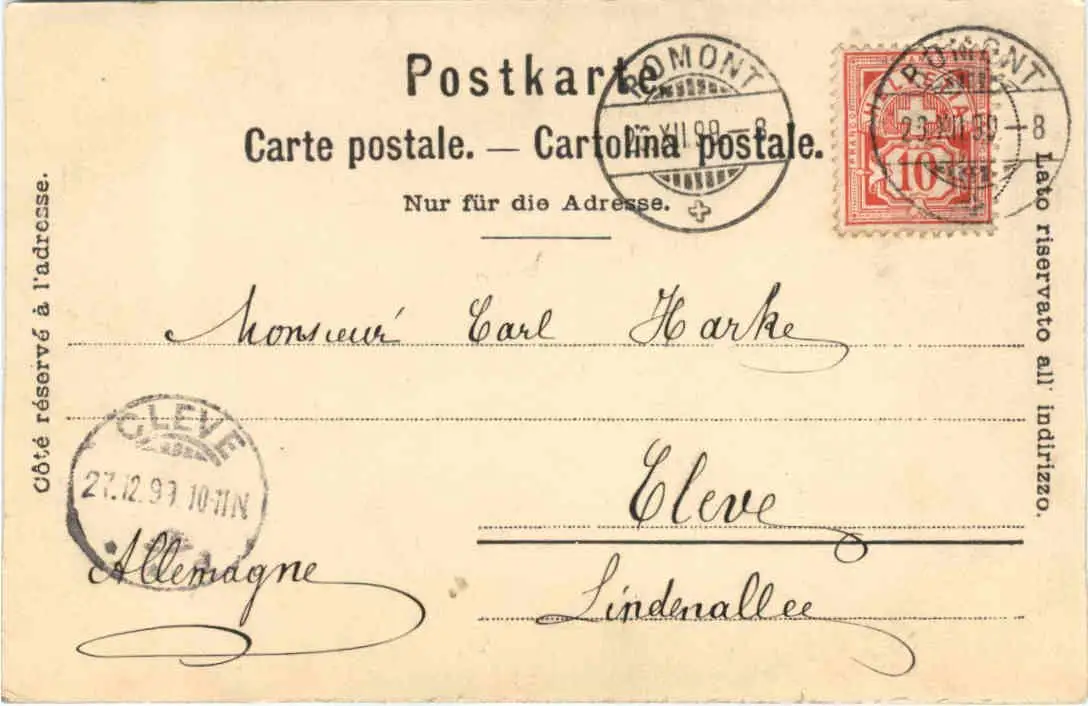 Postkarte
Carte postale. — Cartolina postale.
Nur für die Adresse.
ROMONT
XII 99 – 8
HELVETIA
10
ROMONT
XII 99 – 8
Côté réservé à l'adresse.
Lato riservato all' indirizzo.
Monsieur Carl Harke
CLEVE
27.12.99 10-11N
Cleve
Allemagne
Lindenallee